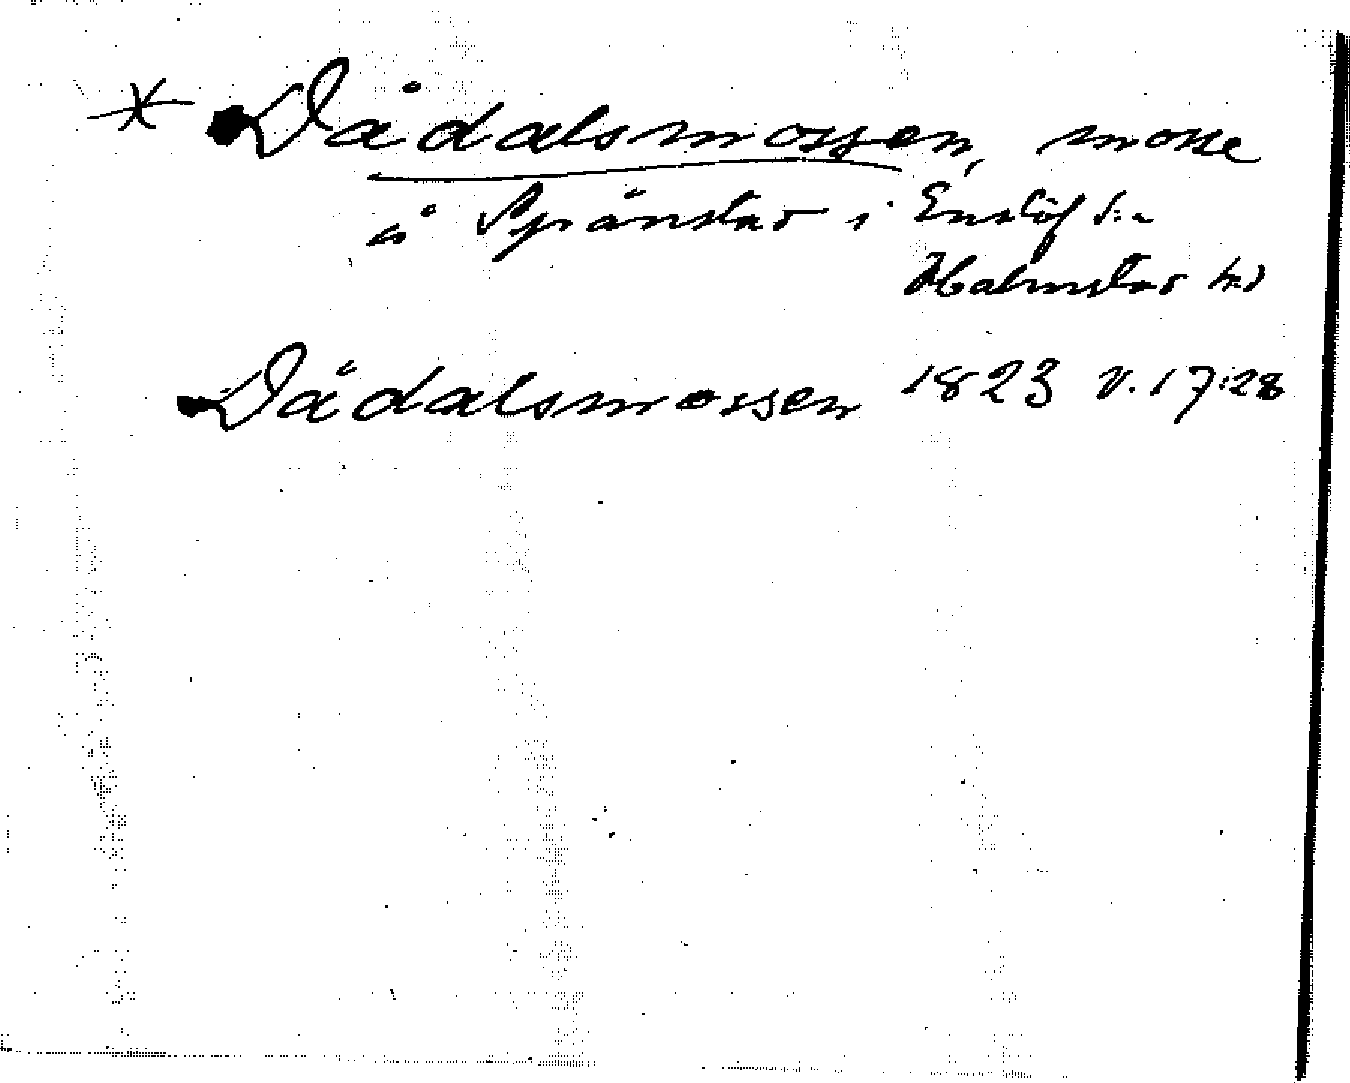 * Dådalsmossen, mosse
å Spånstad i Enslöf sn
Halmstad hd
Dådalsmossen 1823 v. 17:28